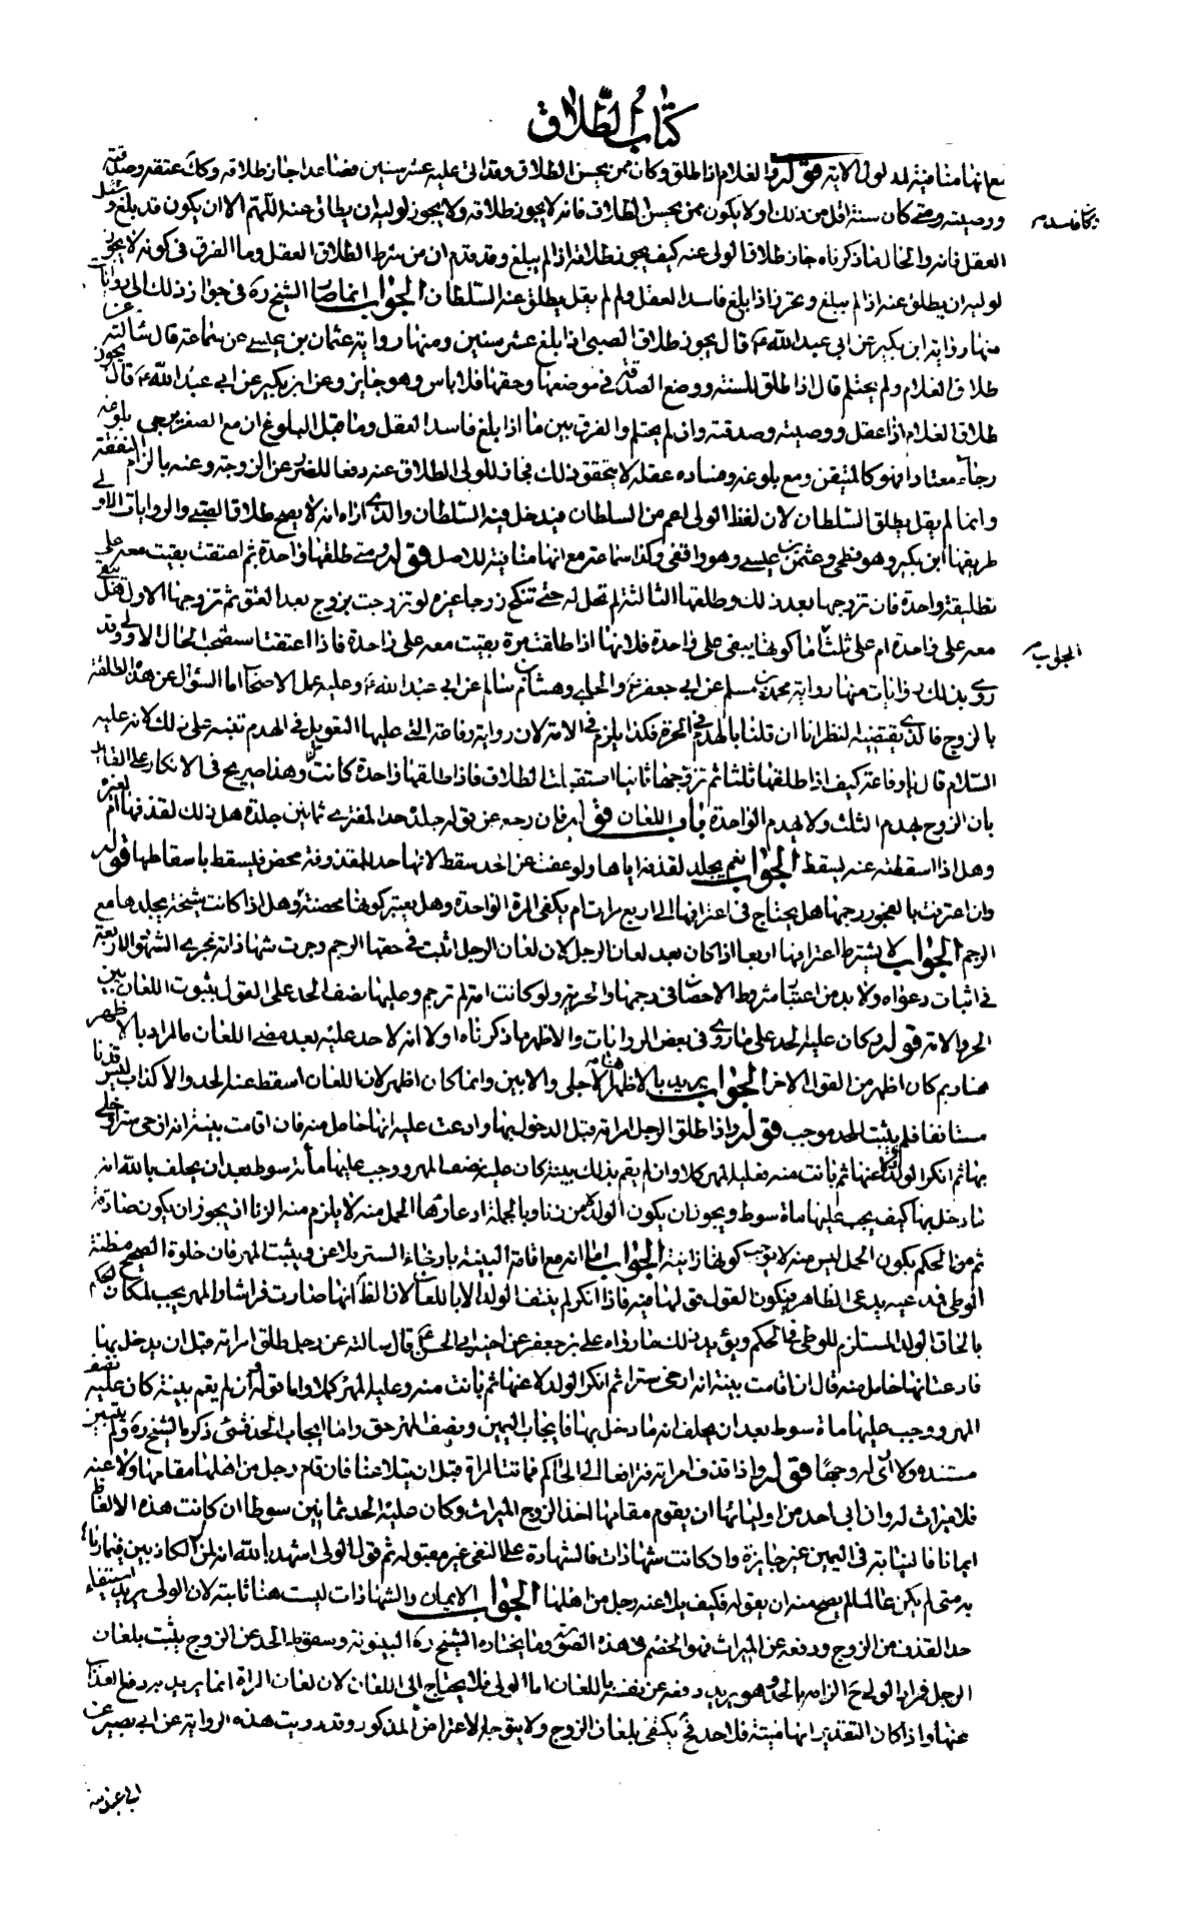 كتاب الطلاق
مع انها منافية لمدلول الاية قوله والغلام اذا طلق وكان ممن يحسن الطلاق وقد اتى عليه عشر سنين فصاعدا جاز طلاقه وكك عتقه وصدقته
ووصيته ومتى كان سنه اقل من ذلك او لا يكون ممن يحسن الطلاق فانه لا يجوز طلاقه ولا يجوز لوليه ان يطلق عنه اللهم الا ان يكون قد بلغ وفسد
العقل فانه والحال ما ذكرناه جاز طلاق الولى عنه كيف يجوز طلاقه اذا لم يبلغ وقد تقدم ان من شرط الطلاق العقل وما الفرق فى كونه لا يجوز
لوليه ان يطلق عنه اذا لم يبلغ ويجوز اذا بلغ فاسد العقل ولم لم يقل يطلق عنه السلطان الجواب انما صار الشيخ ره فى جواز ذلك الى روايات
منها رواية ابن بكير عن ابى عبد الله ع قال يجوز طلاق الصبى اذا بلغ عشر سنين ومنها رواية عثمان بن عيسى عن سماعة قال سالته عن
طلاق الغلام ولم يحتلم قال اذا طلق للسنة ووضع الصدقة فى موضعها وحقها فلا باس وهو جايز وعن ابن بكير عن ابى عبد الله ع قال يجوز
طلاق الغلام اذا عقل ووصيته وصدقته وان لم يحتلم والفرق بين ما اذا بلغ فاسد العقل وما قبل البلوغ ان مع الصغر يرجى بلوغه
رجاء معتادا فهو كالمتيقن ومع بلوغه وفساده عقله لا يتحقق ذلك فجاز للولى الطلاق عنه دفعا للضرر عن الزوجة وعنه بالزام النفقة
وانما لم يقل يطلق السلطان لان لفظ الولى اعم من السلطان فيدخل فيه السلطان والذى اراه انه لا يصح طلاق الصبى والروايات الاولى
طريقها ابن بكير وهو فطحى وعثمن بن عيسى وهو واقفى وكذا سماعة مع انها منافية للاصل قوله ومتى طلقها واحدة ثم اعتقت بقيت معه على
تطليقة واحدة فان تزوجها بعد ذلك وطلقها الثالثة لم تحل له حتى تنكح زوجا غيره لو تزوجت بزوج بعد العتق ثم تزوجها الاول هل تبقى
معه على واحدة ام على ثلث اما كونها يبقى على واحدة فلانها اذا طلقت مرة بقيت معه على واحدة فاذا اعتقت استصحب الحال الاولى وقد
روى بذلك روايات منها رواية محمد بن مسلم عن ابى جعفر ع والحلبى وهشام بن سالم عن ابى عبد الله ع وعليه عمل الاصحاب اما السؤال عن هذه المطلقة
بالزوج فالذى يقتضيه النظر انا ان قلنا بالهدم فى الحرة فكذا يلزم فى الامة لان رواية رفاعة التى عليها التعويل فى الهدم تنبه على ذلك لانه عليه
السلام قال يا رفاعة كيف اذا طلقها ثلثا ثم تزوجها ثانيا استقبلت الطلاق فاذا طلقها واحدة كانت وهذا صريح فى الانكار على القايل
بان الزوج يهدم الثلث ولا يهدم الواحدة باب اللعان قوله فان رجع عن قوله جلد حد المفترى ثمانين جلدة هل ذلك لقذفها ام لغيره
وهل اذا اسقطته عنه يسقط الجواب نعم يجلد لقذفه اياها ولو عفت عن الحد سقط لانها حد المقذوفة محض فيسقط باسقاطها قوله
وان اعترفت بالفجور رجمها هل يحتاج فى اعترافها الى اربع مرات ام يكفى المرة الواحدة وهل يعتبر كونها محصنة وهل اذا كانت شيخة يجلدها مع
الرجم الجواب لا يشترط اعترافها اربعا اذا كان بعد لعان الرجل لان لعان الرجل اثبت فى حقها الرجم وجرت شهاداته مجرى الشهود الاربعة
فى اثبات دعواه ولا بد من اعتبار شروط الاحصان فى رجمها والحرية ولو كانت امة لم ترجم وعليها نصف الحد على القول بثبوت اللعان بين
الحر والامة قوله وكان عليه الحد على ما روى فى بعض الروايات والاظهر ما ذكرناه اولا انه لا حد عليه بعد مضى اللعان ما المراد بالاظهر
هنا وبم كان اظهر من القول الاخر الجواب يريد بالاظهر هنا الاجلى والابين وانما كان اظهر لان اللعان اسقط عنه الحد والاكذاب ليس قذفا
مستانفا فلم يثبت الحد موجب قوله واذا طلق الرجل امراته قبل الدخول بها وادعت عليه انها حامل منه فان اقامت بينة انه ارخى سترا وخلى
بها ثم انكر الولد لاعنها ثم بانت منه وعليه المهر كملا وان لم يقم بذلك بينة كان عليه نصف المهر ووجب عليها مأة سوط بعد ان يحلف بالله انه
ما دخل بها كيف يجب عليها ماة سوط ويجوز ان يكون الولد لا من زنا وبالجملة ادعاؤها الحمل منه لا يلزم منه الزنا اذ يجوز ان يكون صادقة
ثم من الحكم بكون الحمل ليس منه لا يوجب كونها زانية الجواب اما انه مع اقامة البينة بارخاء الستر يلاعن ويثبت المهر فان خلوة الصحيح مظنة
الوطى فمدعيه يدعى الظاهر فيكون القول قولها فيه فاذا انكر لم ينتف الولد الا باللعان لان الظاهر انها صارت فراشا والمهر يجب لمكان الحكم
بالحاق الولد المستلزم للوطى فى الحكم ويؤيد ذلك ما رواه على بن جعفر عن اخيه ابى الحسن ع قال سالته عن رجل طلق امراته قبل ان يدخل بها
فادعت انها حامل منه قال ان اقامت بينة انه ارخى سترا ثم انكر الولد لاعنها ثم بانت منه وعليه المهر كملا واما قوله وان لم يقم بينة كان عليه نصف
المهر ووجب عليها ماة سوط بعد ان يحلف انه ما دخل بها فايجاب اليمين ونصف المهر حق واما ايجاب الحد فشئ ذكره الشيخ ره ولم يتبين
مستنده ولا ارى له وجها قوله واذا قذف امراته فترافعا الى الحاكم فماتت المراة قبل ان يتلاعنا فان قام رجل من اهلها مقامها ولاعنه
فلا ميراث له وان ابى احد من اوليائها ان يقوم مقامها اخذ الزوج الميراث وكان عليه الحد ثمانين سوطا ان كانت هذه الالفاظ
ايمانا فالنيابة فى اليمين غير جايزة وان كانت شهادات فالشهادة على النفى غير مقبولة ثم قول الولى اشهد بالله انه لمن الكاذبين فيما رماها
به متى لم يكن عالما لم يصح منه ان يقوله فكيف يلاعنه رجل من اهلها الجواب الايمان والشهادات ليست هنا ثابتة لان الولى يريد استيفاء
حد القذف من الزوج ودفعه عن الميراث فهو الخصم فى هذه الصورة وما يختاره الشيخ ره البينونة وسقوط الحد عن الزوج يثبت بلعان
الرجل فمراد الولى ح الزامه بالحد وهو يريد دفعه عن نفسه باللعان اما الولى فلا يحتاج الى اللعان لان لعان المراة انما يريد به رفع العذاب
عنها واذا كان التقدير انها ميتة فلا حد فح يكتفى بلعان الزوج ولا يتوجه الاعتراض المذكور وقد رويت هذه الرواية عن ابى بصير عن
الجواب
ابى عبد الله